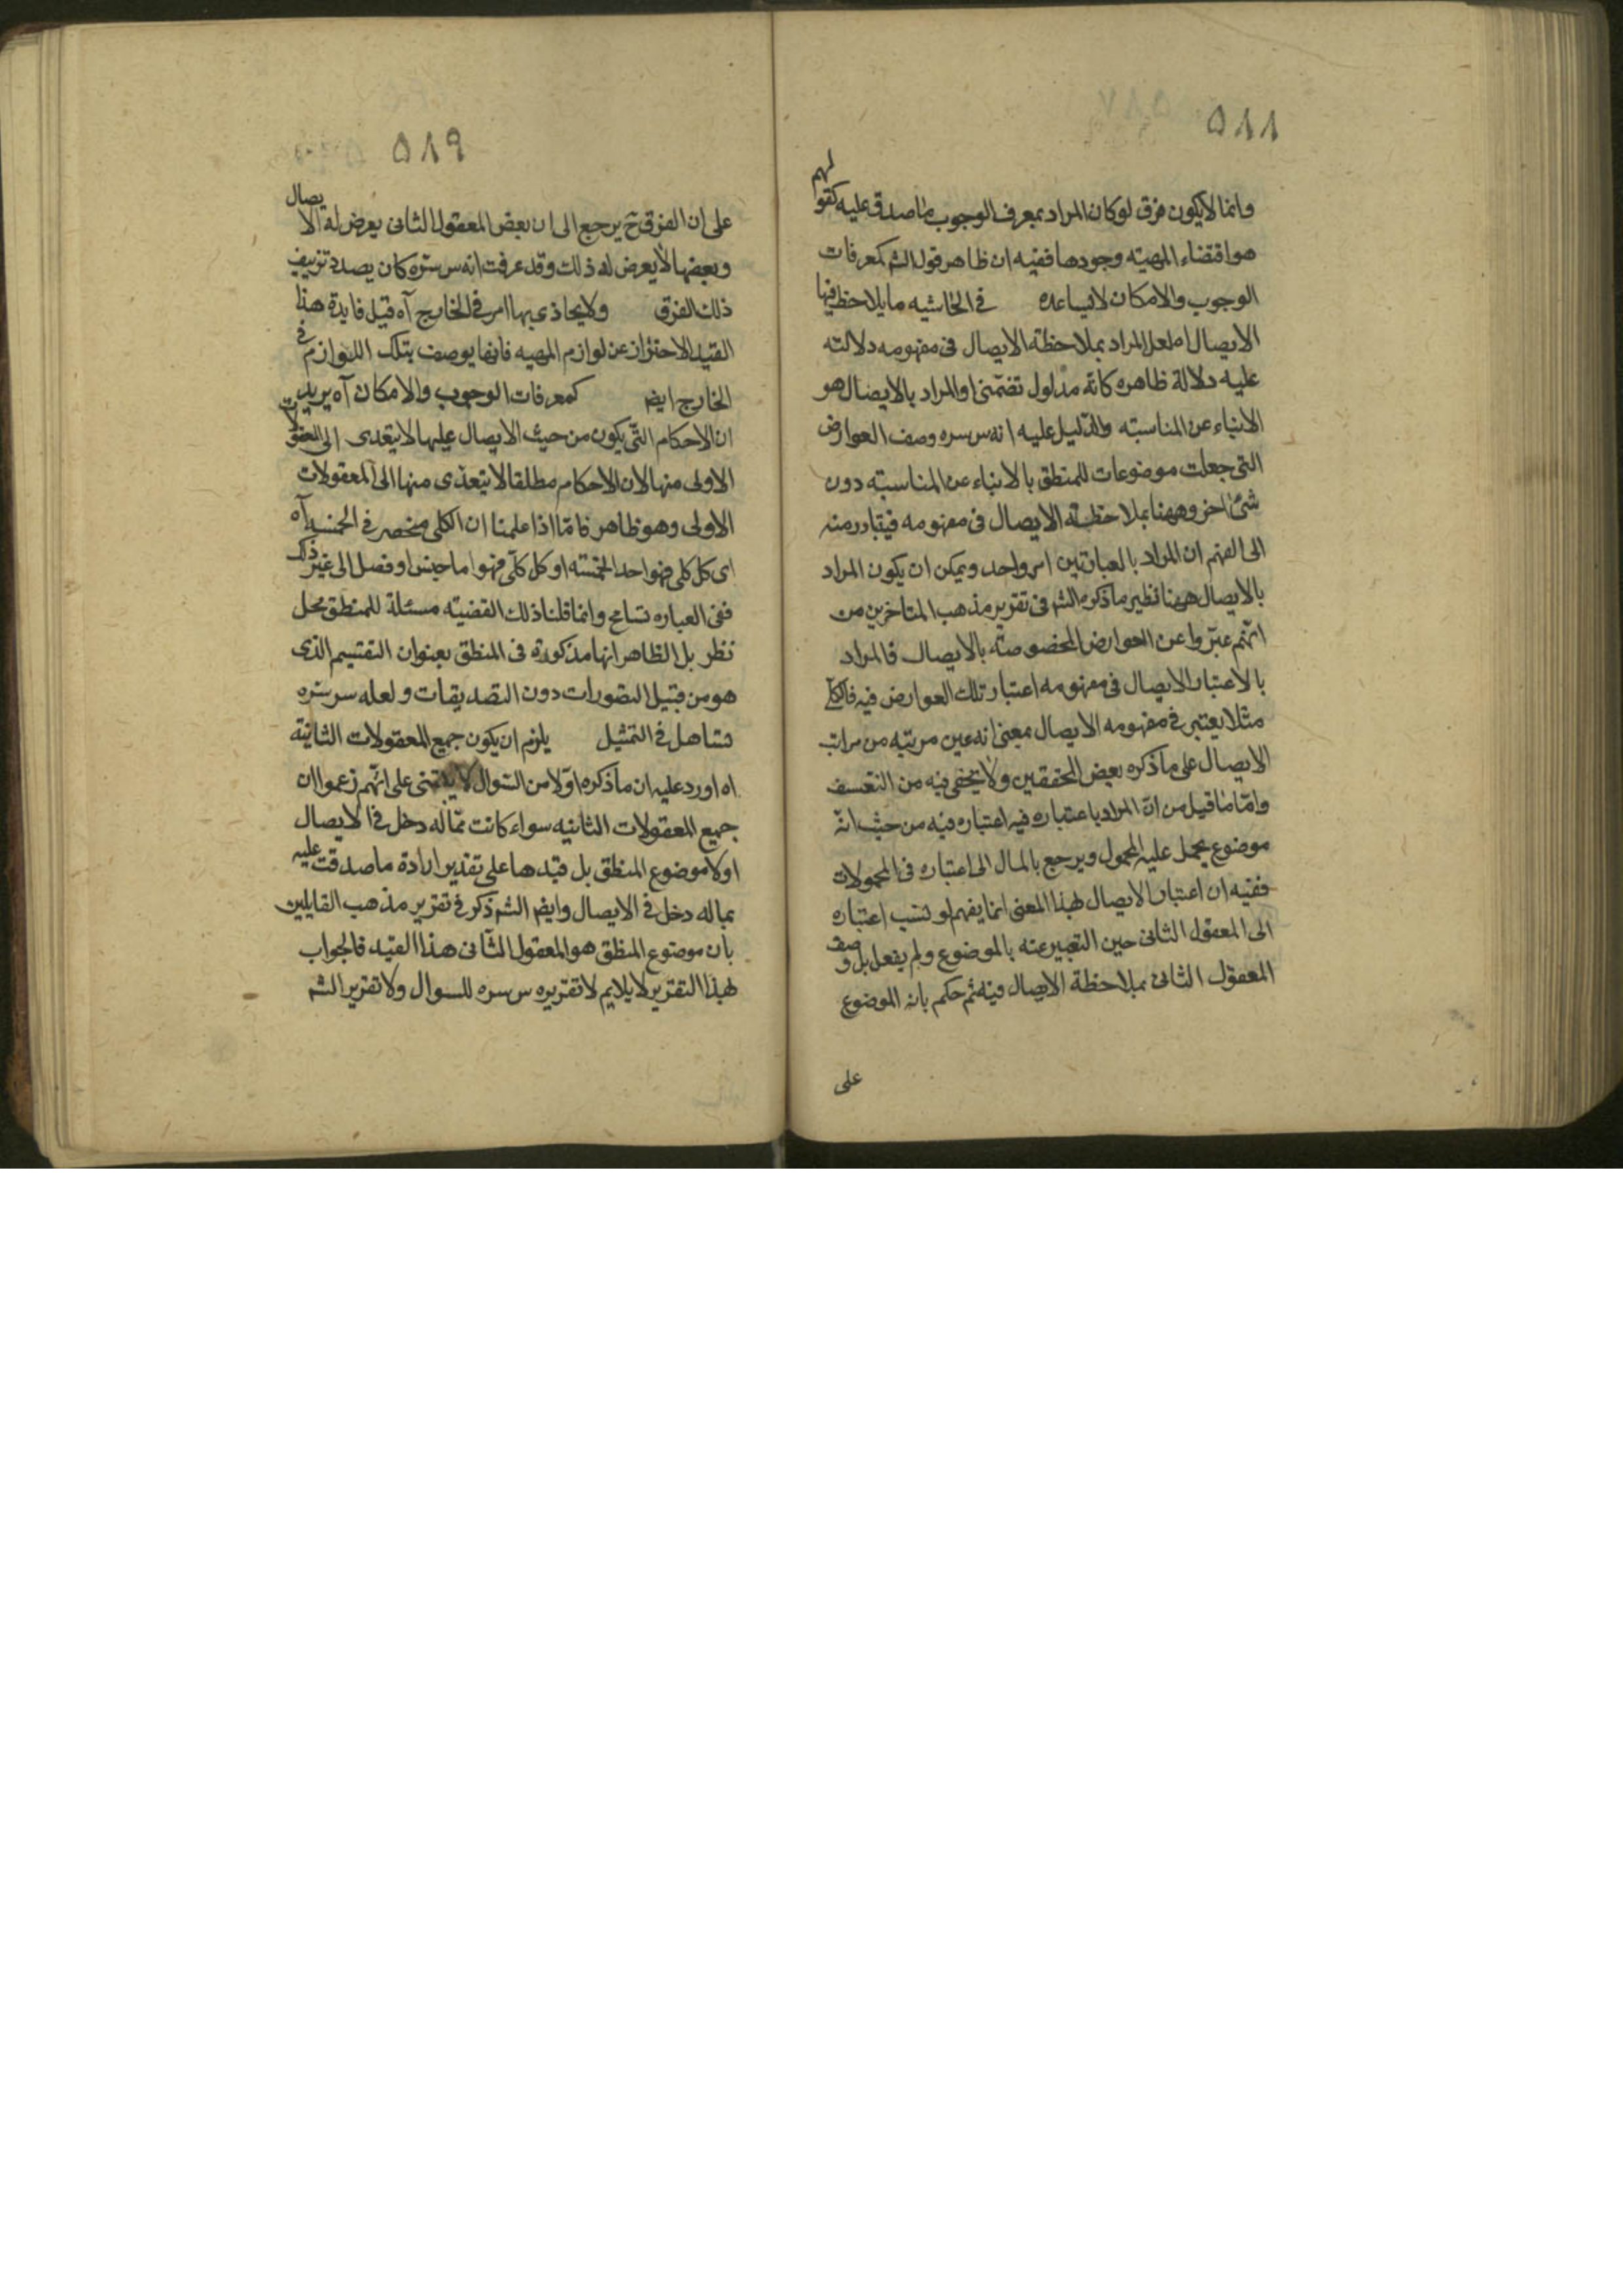 ٥٨٨
وانما لا يكون فرق لو كان المراد بمعرف الوجوب ما صدق عليه كقولهم
هو اقتضاء المهية وجودها ففيه ان ظاهر قول الشم كمعرفات
الوجوب والامكان لا يساعده في الحاشيه ما يلاحظ فيها
الايصال لعل المراد بملاحظة الايصال في مفهومه دلالته
عليه دلالة ظاهره كانه مدلول تضمنى والمراد بالايصال هو
الانباء عن المناسبته والدليل عليه انه س سره وصف العوارض
التى جعلت موضوعات للمنطق بالانباء عن المناسبته دون
شئ اخر وههنا بملاحظة الايصال في مفهومه فيتبادر منه
الى الفهم ان المراد بالعبارتين امر واحد ويمكن ان يكون المراد
بالايصال ههنا نظير ما ذكره الشم في تقرير مذهب المتاخرين من
انهم عبروا عن العوارض المخصوصة بالايصال فالمراد
بالاعتبار الايصال في مفهومه اعتبار تلك العوارض فيه فالكلى
مثلا يعتبر في مفهومه الايصال بمعنى انه عين مرتبه من مراتب
الايصال على ما ذكره بعض المحققين ولا يخفى فيه من التعسف
واما ما قيل من ان المراد باعتباره فيه اعتباره فيه من حيث انه
موضوع يحمل عليه المحمول ويرجع بالمال الى اعتباره في المحمولات
ففيه ان اعتبار الايصال لهذا المعنى انما يفهم لو نسب اعتباره
الى المعقول الثانى حين التعبير عنه بالموضوع ولم يفعل بل وصف
المعقول الثانى بملاحظة الايصال فيه ثم حكم بانه الموضوع
على
٥٨٩
على ان الفرق ح يرجع الى ان بعض المعقول الثانى يعرض له الايصال
وبعضها لا يعرض له ذلك وقد عرفت انه س سره كان بصدد تزييف
ذلك الفرق ولا يحاذى بها امر في الخارج آه قيل فايدة هذا
القيد الاحتراز عن لوازم المهيه فانها يوصف بتلك اللوازم في
الخارج ايضم كمعرفات الوجوب والامكان آه يريد
ان الاحكام التى يكون من حيث الايصال عليها لا يتعدى الى المعقولات
الاولى منها لان الاحكام مطلقا لا يتعدى منها الى المعقولات
الاولى وهو ظاهر فاما اذا علمنا ان الكلى منحصر في الخمسه آه
اى كل كلى فهو احد الخمسته او كل كلى فهو اما جنس او فصل الى غير ذلك
ففى العباره تسامح وانما قلنا ذلك القضيته مسئلة للمنطق محل
نظر بل الظاهر انها مذكورة في المنطق بعنوان التقسيم الذى
هو من قبيل التصورات دون التصديقات ولعله س سره
تساهل في التمثيل يلزم ان يكون جميع المعقولات الثانية
اه اورد عليه ان ما ذكره اولا من السوال لا يبتنى على انهم زعموا ان
جميع المعقولات الثانيه سواء كانت مما له دخل في الايصال
اولا موضوع المنطق بل قيدها على تقدير ارادة ما صدقت عليه
بما له دخل في الايصال وايضم الشم ذكر في تقرير مذهب القايلين
بان موضوع المنطق هو المعقول الثانى هذا القيد فالجواب
لهذا التقرير لا يلايم لا تقريره س سره للسوال ولا تقرير الشم